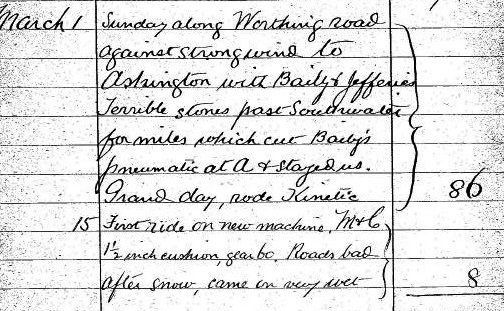 March 1 Sunday along Worthing road
against strong wind to
Ashington with Baily & Jefferies
Terrible stones past Southwater
for miles which cut Baily's
pneumatic at A & stayed us.
Grand day, rode Kinetic 86
15 First ride on new machine, M & C
1½ inch cushion, gear 60. Roads bad
after snow, came on very wet 8